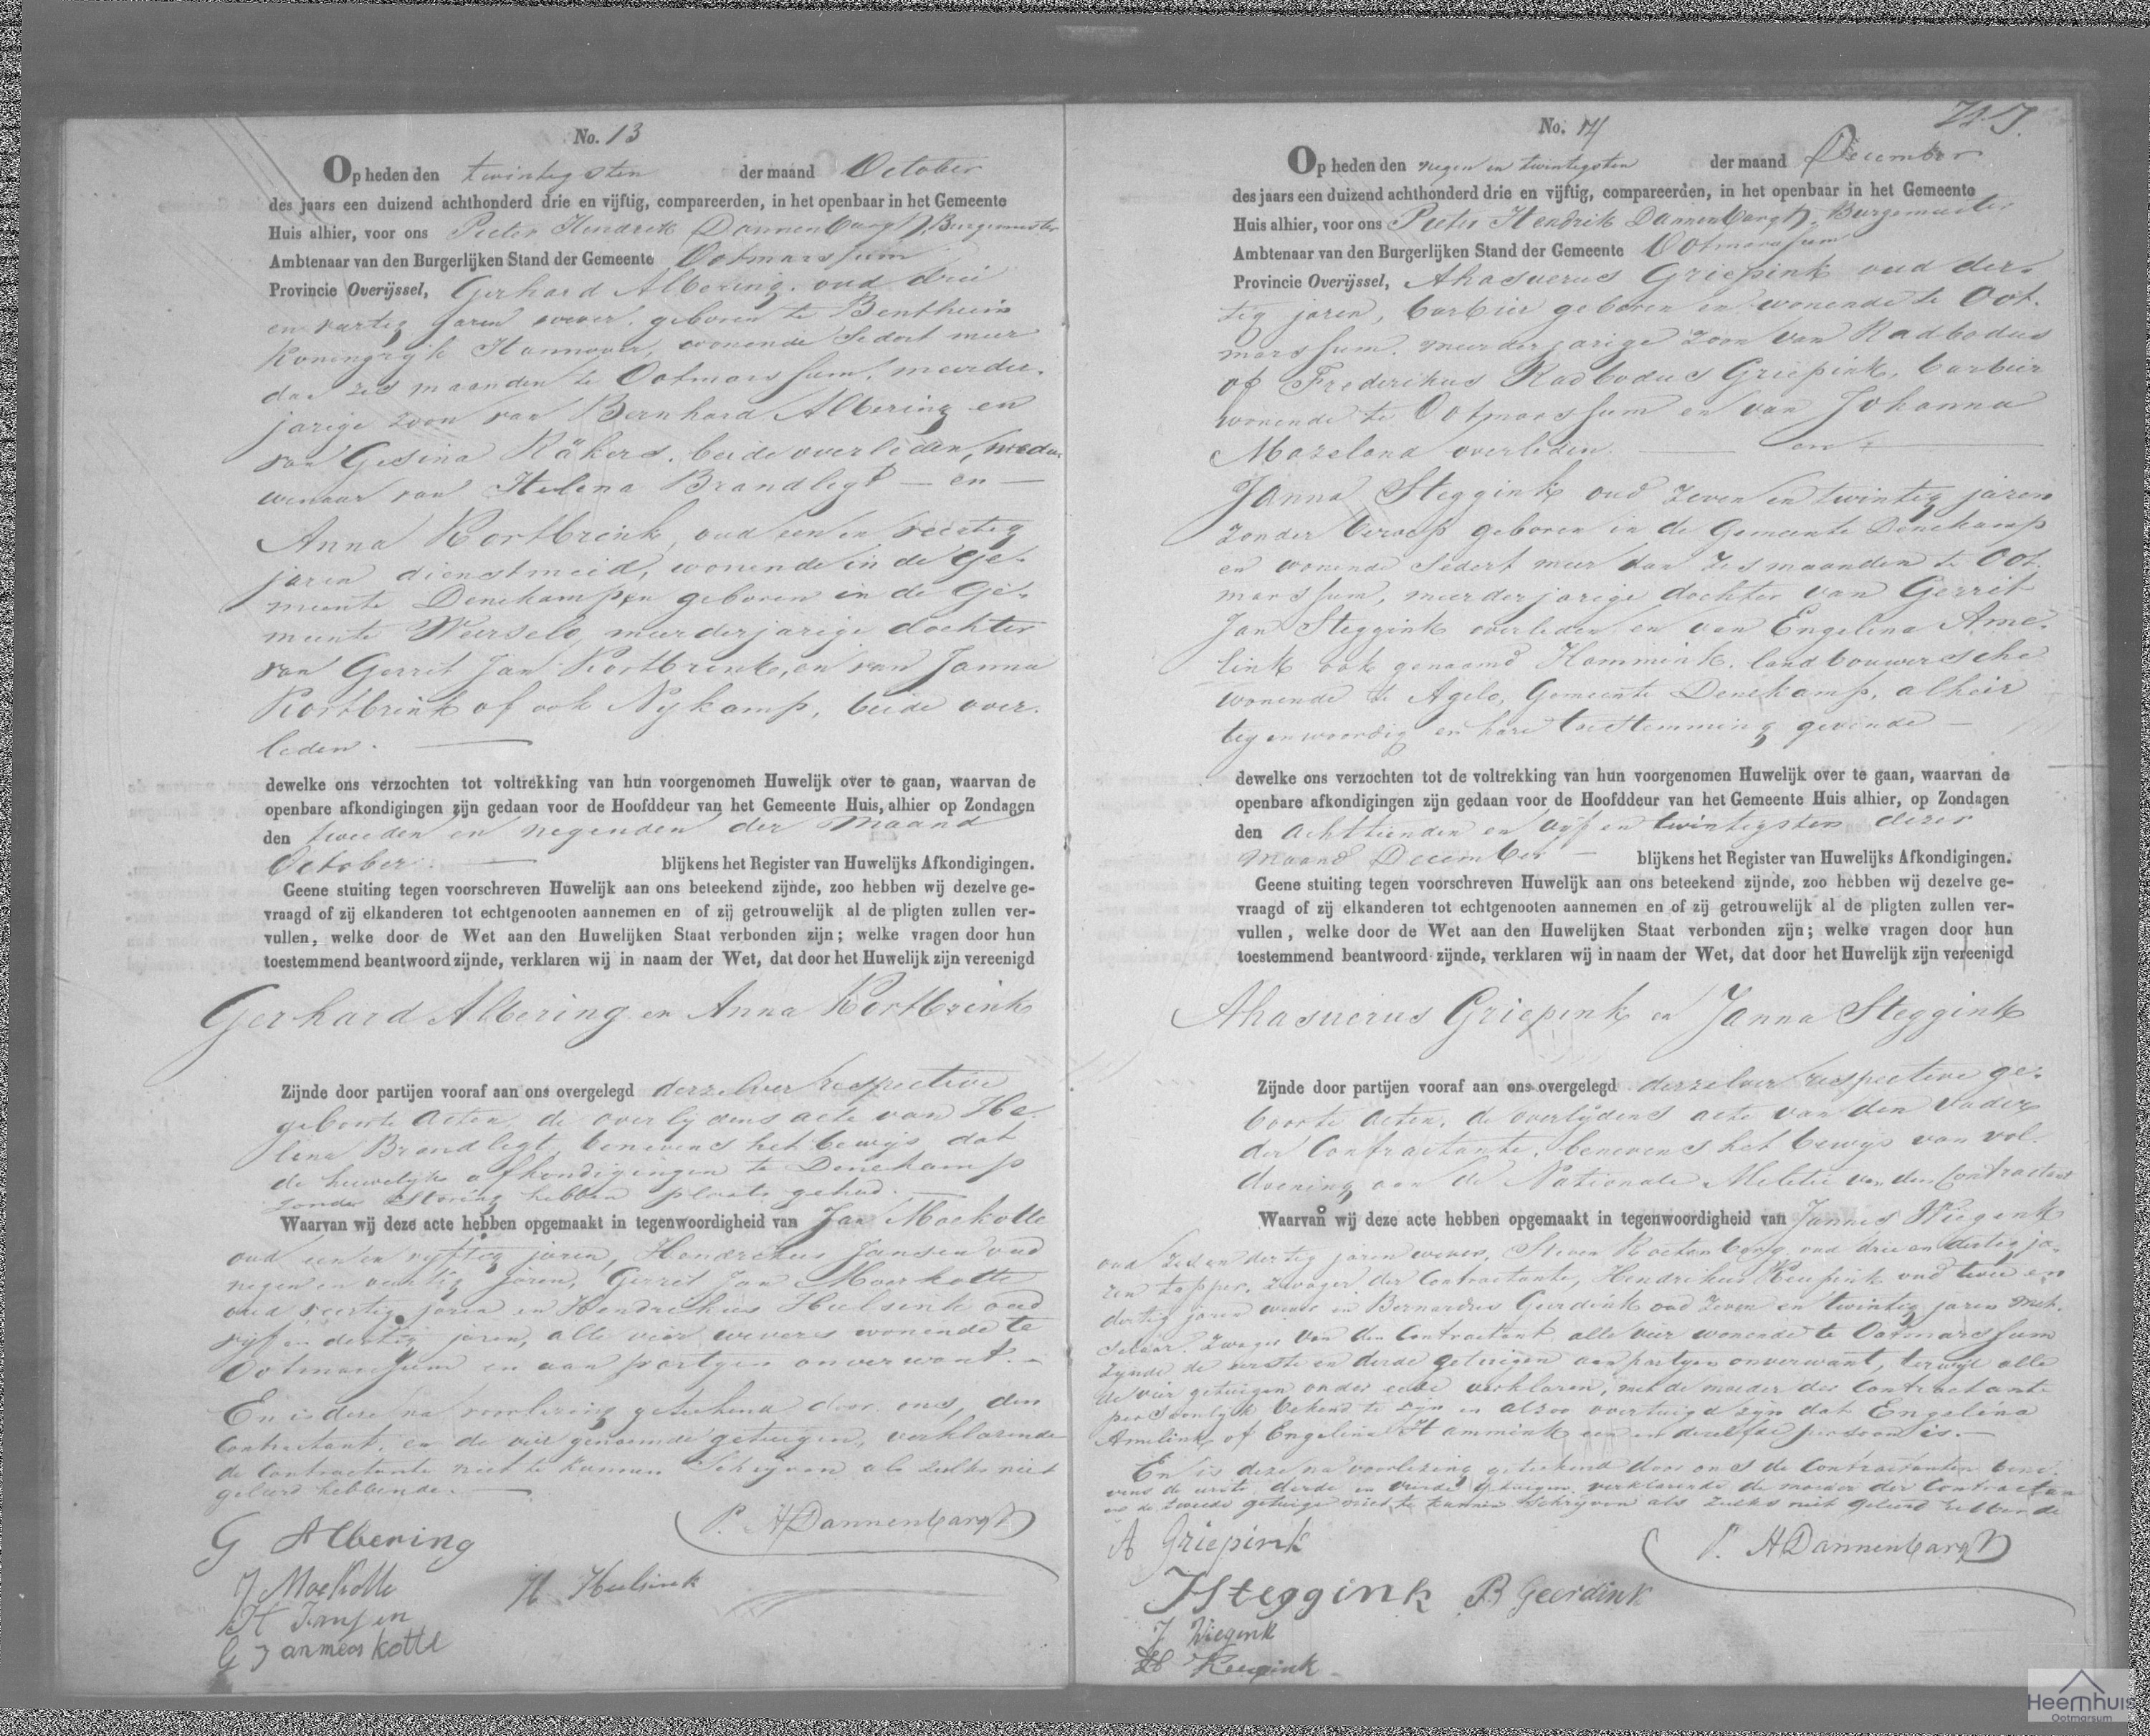 No. 13
Op heden den twintigsten der maand October
des jaars een duizend achthonderd drie en vijftig, compareerden, in het openbaar in het Gemeente
Huis alhier, voor ons Pieter Hendrik Dannenbargh, Burgemeester
Ambtenaar van den Burgerlijken Stand der Gemeente Ootmarssum
Provincie Overijssel, Gerhard Albering, oud drie
en veertig jaren wever, geboren te Bentheim
Koningrijk Hannover, wonende sedert meer
dan zes maanden te Ootmarssum, meerder-
jarige zoon van Bernhard Albering en
van Gesina Räkers, beide overleden, wedu-
wenaar van Helena Brandlegt — en —
Anna Kortbrink, oud een en veertig
jaren dienstmeid, wonende in de Ge-
meente Denekamp en geboren in de Ge-
meente Weerselo, meerderjarige dochter
van Gerrit Jan Kortbrink, en van Janna
Kortbrink of ook Nykamp, beide over-
leden. —
dewelke ons verzochten tot voltrekking van hun voorgenomen Huwelijk over te gaan, waarvan de
openbare afkondigingen zijn gedaan voor de Hoofddeur van het Gemeente Huis, alhier op Zondagen
den tweeden en negenden der maand
October. — blijkens het Register van Huwelijks Afkondigingen.
Geene stuiting tegen voorschreven Huwelijk aan ons beteekend zijnde, zoo hebben wij dezelve ge-
vraagd of zij elkanderen tot echtgenooten aannemen en of zij getrouwelijk al de pligten zullen ver-
vullen, welke door de Wet aan den Huwelijken Staat verbonden zijn; welke vragen door hun
toestemmend beantwoord zijnde, verklaren wij in naam der Wet, dat door het Huwelijk zijn vereenigd
Gerhard Albering en Anna Kortbrink
Zijnde door partijen vooraf aan ons overgelegd derzelver respective
geboorte acten, de overlijdens acte van He-
lena Brandlegt, benevens het bewijs dat
de huwelijks afkondigingen te Denekamp
zonder storing hebben plaats gehad. —
Waarvan wij deze acte hebben opgemaakt in tegenwoordigheid van Jan Moekotte
oud een en vyftig jaren, Hendrikus Jansen oud
negen en veertig jaren, Gerrit Jan Moerkotte
oud veertig jaren en Hendrikus Hulsink oud
vyf en dertig jaren, alle vier wevers wonende te
Ootmarssum en aan partyen onverwant. —
En is deze na voorlezing geteekend door ons, den
Contractant, en de vier genoemde getuigen, verklarende
de Contractante niet te kunnen schryven als zulks niet
geleerd hebbende. —
P. H Dannenbargh
G Albering
J Moekotte
H Hulsink
H Jansen
G Jan meerkotte
No. 14
Op heden den negen en twintigsten der maand December
des jaars een duizend achthonderd drie en vijftig, compareerden, in het openbaar in het Gemeente
Huis alhier, voor ons Pieter Hendrik Dannenbargh, Burgemeester
Ambtenaar van den Burgerlijken Stand der Gemeente Ootmarssum
Provincie Overijssel, Ahasuerus Griepink oud der-
tig jaren, barbier geboren en wonende te Oot-
marssum, meerderjarige zoon van Radbodus
of Frederikus Radbodus Griepink, barbier
wonende te Ootmarssum en van Johanna
Mazeland overleden. — en —
Janna Steggink oud zeven en twintig jaren
zonder beroep geboren in de Gemeente Denekamp
en wonende sedert meer dan zes maanden te Oot-
marssum, meerderjarige dochter van Gerrit
Jan Steggink overleden en van Engelina Ame-
link ook genaamd Hammink, landbouwersche
wonende te Agelo, Gemeente Denekamp, alhier
tegenwoordig en hare toestemming gevende —
dewelke ons verzochten tot de voltrekking van hun voorgenomen Huwelijk over te gaan, waarvan de
openbare afkondigingen zijn gedaan voor de Hoofddeur van het Gemeente Huis alhier, op Zondagen
den achttienden en vyf en twintigsten dezer
maand December — blijkens het Register van Huwelijks Afkondigingen.
Geene stuiting tegen voorschreven Huwelijk aan ons beteekend zijnde, zoo hebben wij dezelve ge-
vraagd of zij elkanderen tot echtgenooten aannemen en of zij getrouwelijk al de pligten zullen ver-
vullen, welke door de Wet aan den Huwelijken Staat verbonden zijn; welke vragen door hun
toestemmend beantwoord zijnde, verklaren wij in naam der Wet, dat door het Huwelijk zijn vereenigd
Ahasuerus Griepink en Janna Steggink
Zijnde door partijen vooraf aan ons overgelegd derzelver respective ge-
boorte acten, de overlijdens acte van den vader
der Contractante, benevens het bewijs van vol-
doening aan de Nationale Militie van den Contractant
Waarvan wij deze acte hebben opgemaakt in tegenwoordigheid van Jannes Wiegink
oud zes en dertig jaren wever, Steven Rotenberg oud drie en dertig ja-
ren tapper, zwager der Contractante, Hendrikus Reupink oud twee en
dertig jaren wever en Bernardus Geerdink oud zeven en twintig jaren met-
selaar, zwager van den Contractant, alle vier wonende te Ootmarssum
zynde de eerste en derde getuigen aan partyen onverwant, terwyl alle
de vier getuigen onder eede verklaren, met de moeder der Contractante
persoonlyk bekend te zijn en alzoo overtuigd zijn dat Engelina
Amelink of Engelina Hammink een en dezelfde persoon is. —
En is deze na voorlezing geteekend door ons de Contractanten bene-
vens de eerste derde en vierde getuigen verklarende de moeder der Contractante
en de tweede getuige niet te kunnen schryven als zulks niet geleerd hebbende
P. H Dannenbargh
A Griepink
J Steggink B Geerdink
J Wiegink
H Reupink
Heemhuis
Ootmarsum